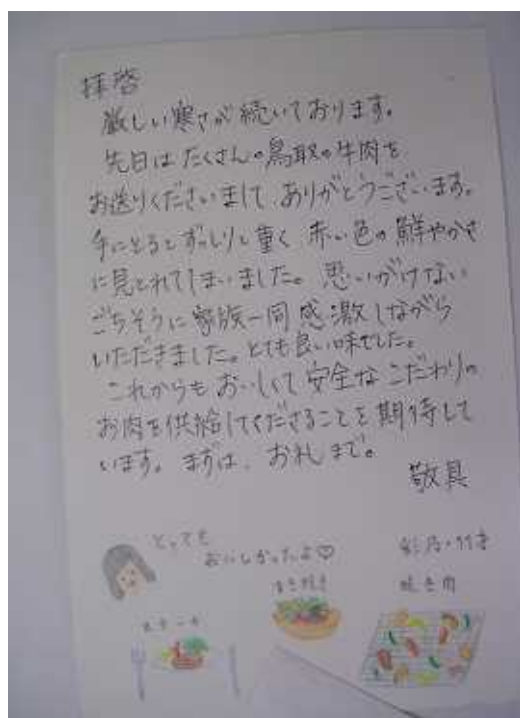 拝啓
厳しい寒さが続いております。
先日はたくさんの鳥取の牛肉を
お送りくださいまして、ありがとうございます。
手にとるとずっしりと重く 赤い色の鮮やかさ
に見とれてしまいました。思いがけない
ごちそうに家族一同感激しながら
いただきました。とても良い味でした。
これからもおいしくて安全なこだわりの
お肉を供給してくださることを期待して
います。まずは、お礼まで。
敬具
とっても
おいしかったよ♡
すき焼き
焼き肉
ステーキ